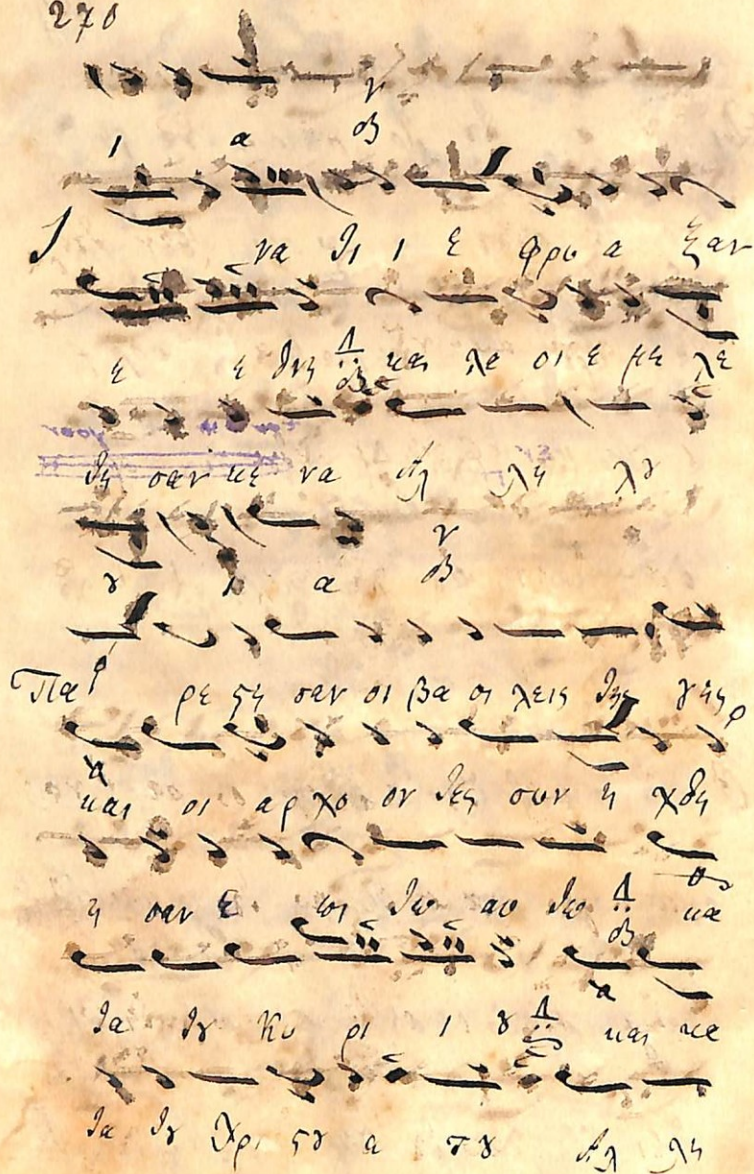 270
ι α
Ι να τι ι ε φρυ α ξαν
ε ε θνη και λα οι ε με λε
τη σαν κε να Αλ λη λȣ
ȣ ι α
Πα ρε ϛη σαν οι βα σι λεις της γης
και οι αρ χο ον τες συν η χθη
η σαν ε πι τω αυ τω κα
τα τȣ Κυ ρι ι ȣ και κα
τα τȣ Χρι ϛȣ α τȣ Αλ λη